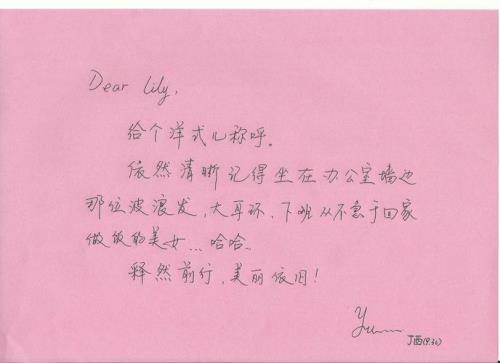 Dear Lily,
给个洋式儿称呼。
依然清晰记得坐在办公室墙边
那位波浪发,大耳环,下班从不急于回家
做饭的美女...哈哈..
释然前行,美丽依旧!
丁酉(9.30)